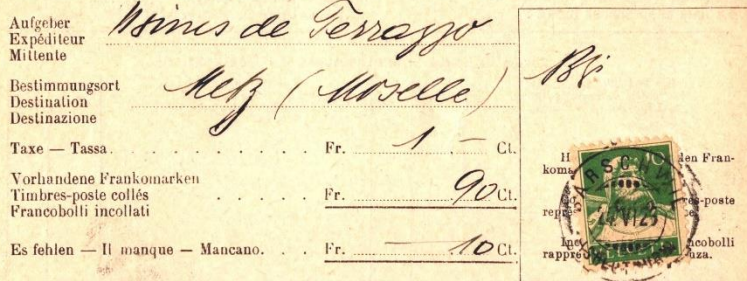 Aufgeber
Expéditeur
Mittente
Usines de Terrazzo
Bestimmungsort
Destination
Destinazione
Metz (Moselle)
Taxe — Tassa . . . . . . . . Fr. 1 – Ct.
Vorhandene Frankomarken
Timbres-poste collés
Francobolli incollati
Fr. 90 Ct.
Es fehlen — Il manque — Mancano. . . Fr. 10 Ct.
10
koma
len Fran-
repré
es-poste
rappre
ncobolli
nza.
BÄRSCHWIL
HELVETIA